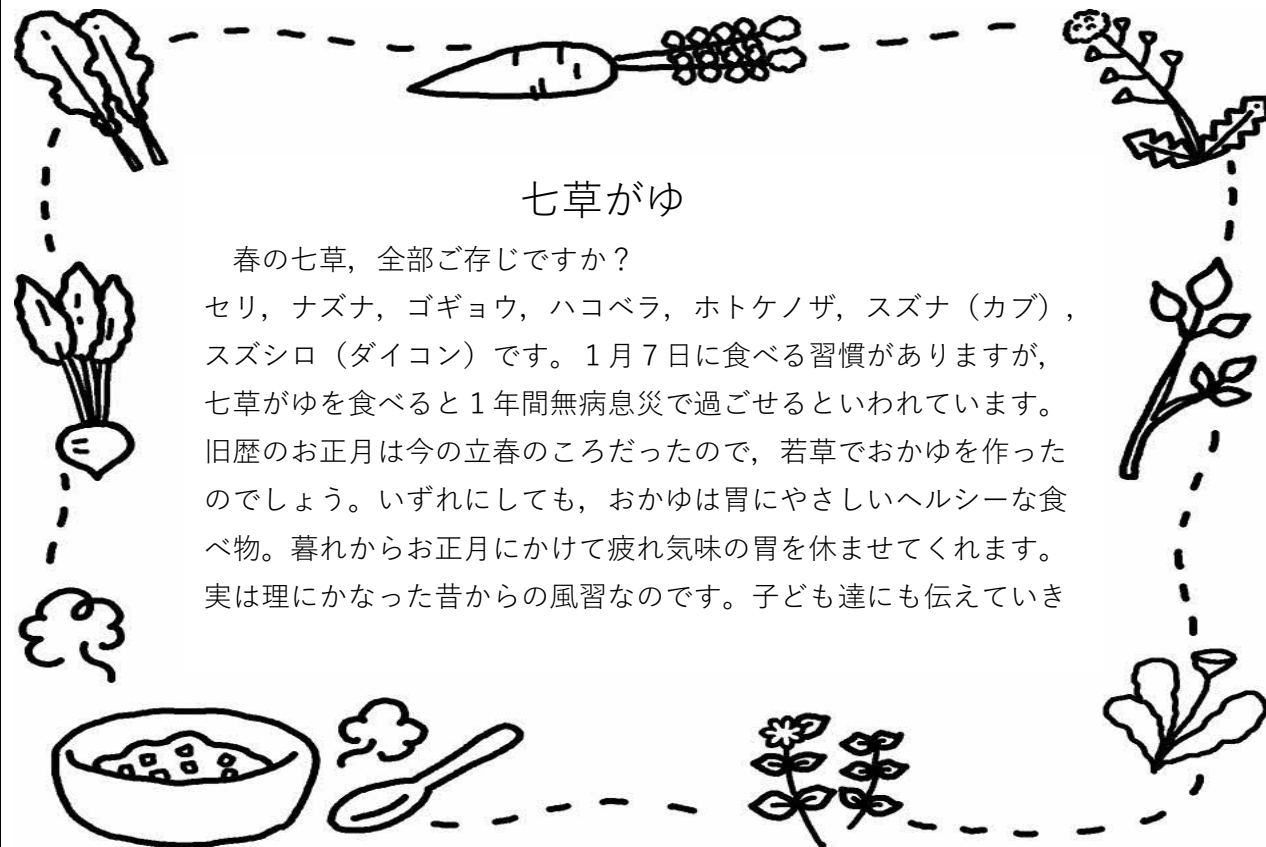 七草がゆ
　春の七草，全部ご存じですか？
セリ，ナズナ，ゴギョウ，ハコベラ，ホトケノザ，スズナ（カブ），
スズシロ（ダイコン）です。１月７日に食べる習慣がありますが，
七草がゆを食べると１年間無病息災で過ごせるといわれています。
旧歴のお正月は今の立春のころだったので，若草でおかゆを作った
のでしょう。いずれにしても，おかゆは胃にやさしいヘルシーな食
べ物。暮れからお正月にかけて疲れ気味の胃を休ませてくれます。
実は理にかなった昔からの風習なのです。子ども達にも伝えていき